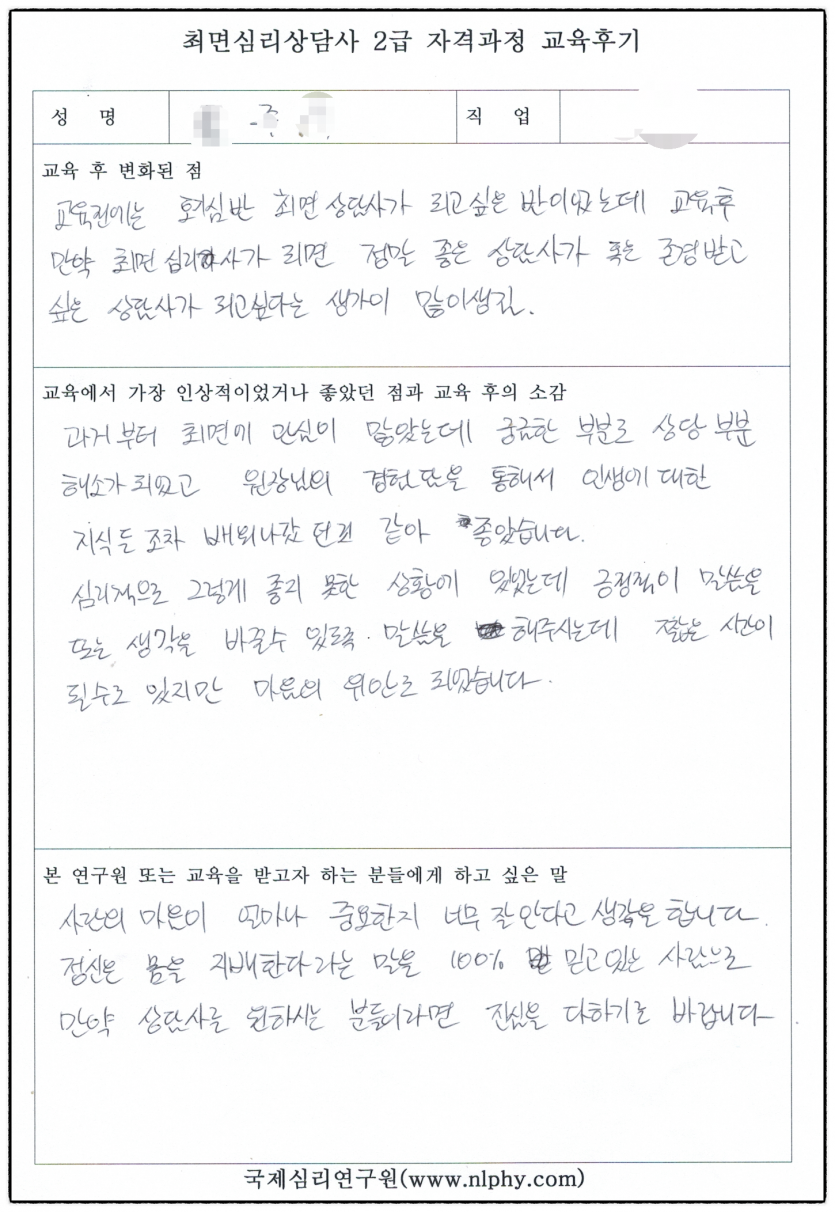 최면심리상담사 2급 자격과정 교육후기
성 명
직 업
교육 후 변화된 점
교육전에는 호기심반 최면상담사가 되고싶은 반이었는데 교육후
만약 최면심리사가 되면 정말 좋은 상담사가 혹은 존경받고
싶은 상담사가 되고싶다는 생각이 많이생김.
교육에서 가장 인상적이었거나 좋았던 점과 교육 후의 소감
과거부터 최면에 관심이 많았는데 궁금한 부분도 상당부분
해소가 되었고 원장님의 경험담을 통해서 인생에 대한
지식들 조차 배워나갔던것 같아 좋았습니다.
심리적으로 그렇게 좋지 못한 상황에 있었는데 긍정적이 말씀을
또는 생각을 바꿀수 있도록 말씀을 해주시는데 짧은 시간이
될수도 있지만 마음의 위안도 되었습니다.
본 연구원 또는 교육을 받고자 하는 분들에게 하고 싶은 말
사람의 마음이 얼마나 중요한지 너무 잘안다고 생각을 합니다.
정신은 몸을 지배한다라는 말을 100% 믿고있는 사람으로
만약 상담사를 원하시는 분들이라면 진심을 다하기를 바랍니다
국제심리연구원(www.nlphy.com)